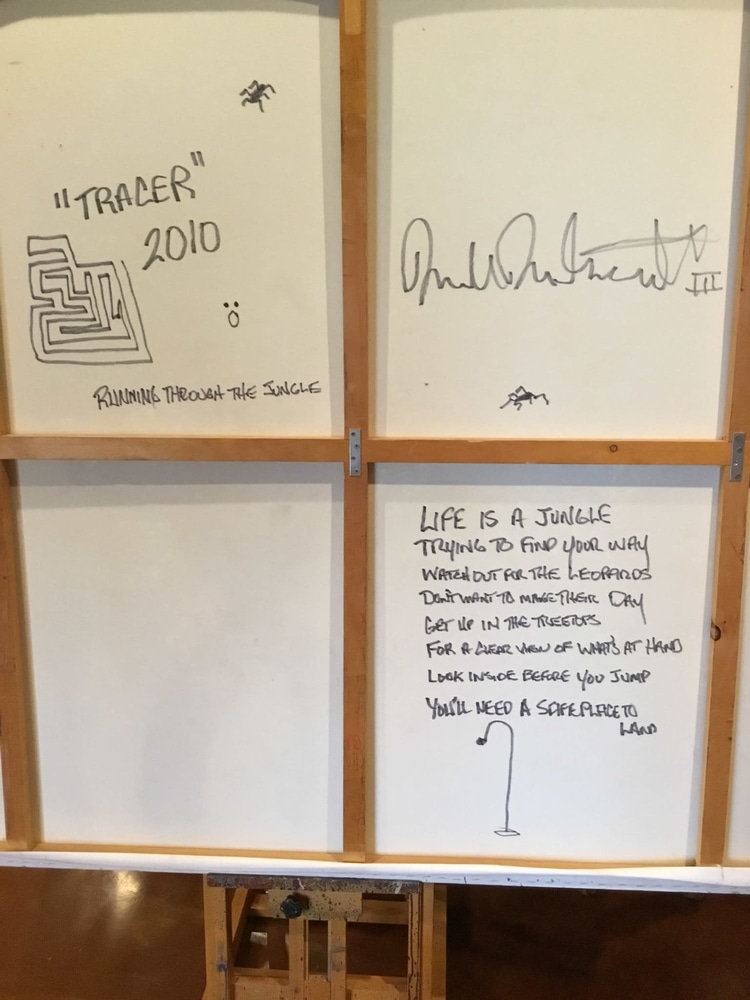 "TRACER"
2010
RUNNING THROUGH THE JUNGLE
III
LIFE IS A JUNGLE
TRYING TO FIND YOUR WAY
WATCH OUT FOR THE LEOPARDS
DON'T WANT TO MAKE THEIR DAY
GET UP IN THE TREETOPS
FOR A CLEAR VIEW OF WHAT'S AT HAND
LOOK INSIDE BEFORE YOU JUMP
YOU'LL NEED A SAFE PLACE TO
LAND